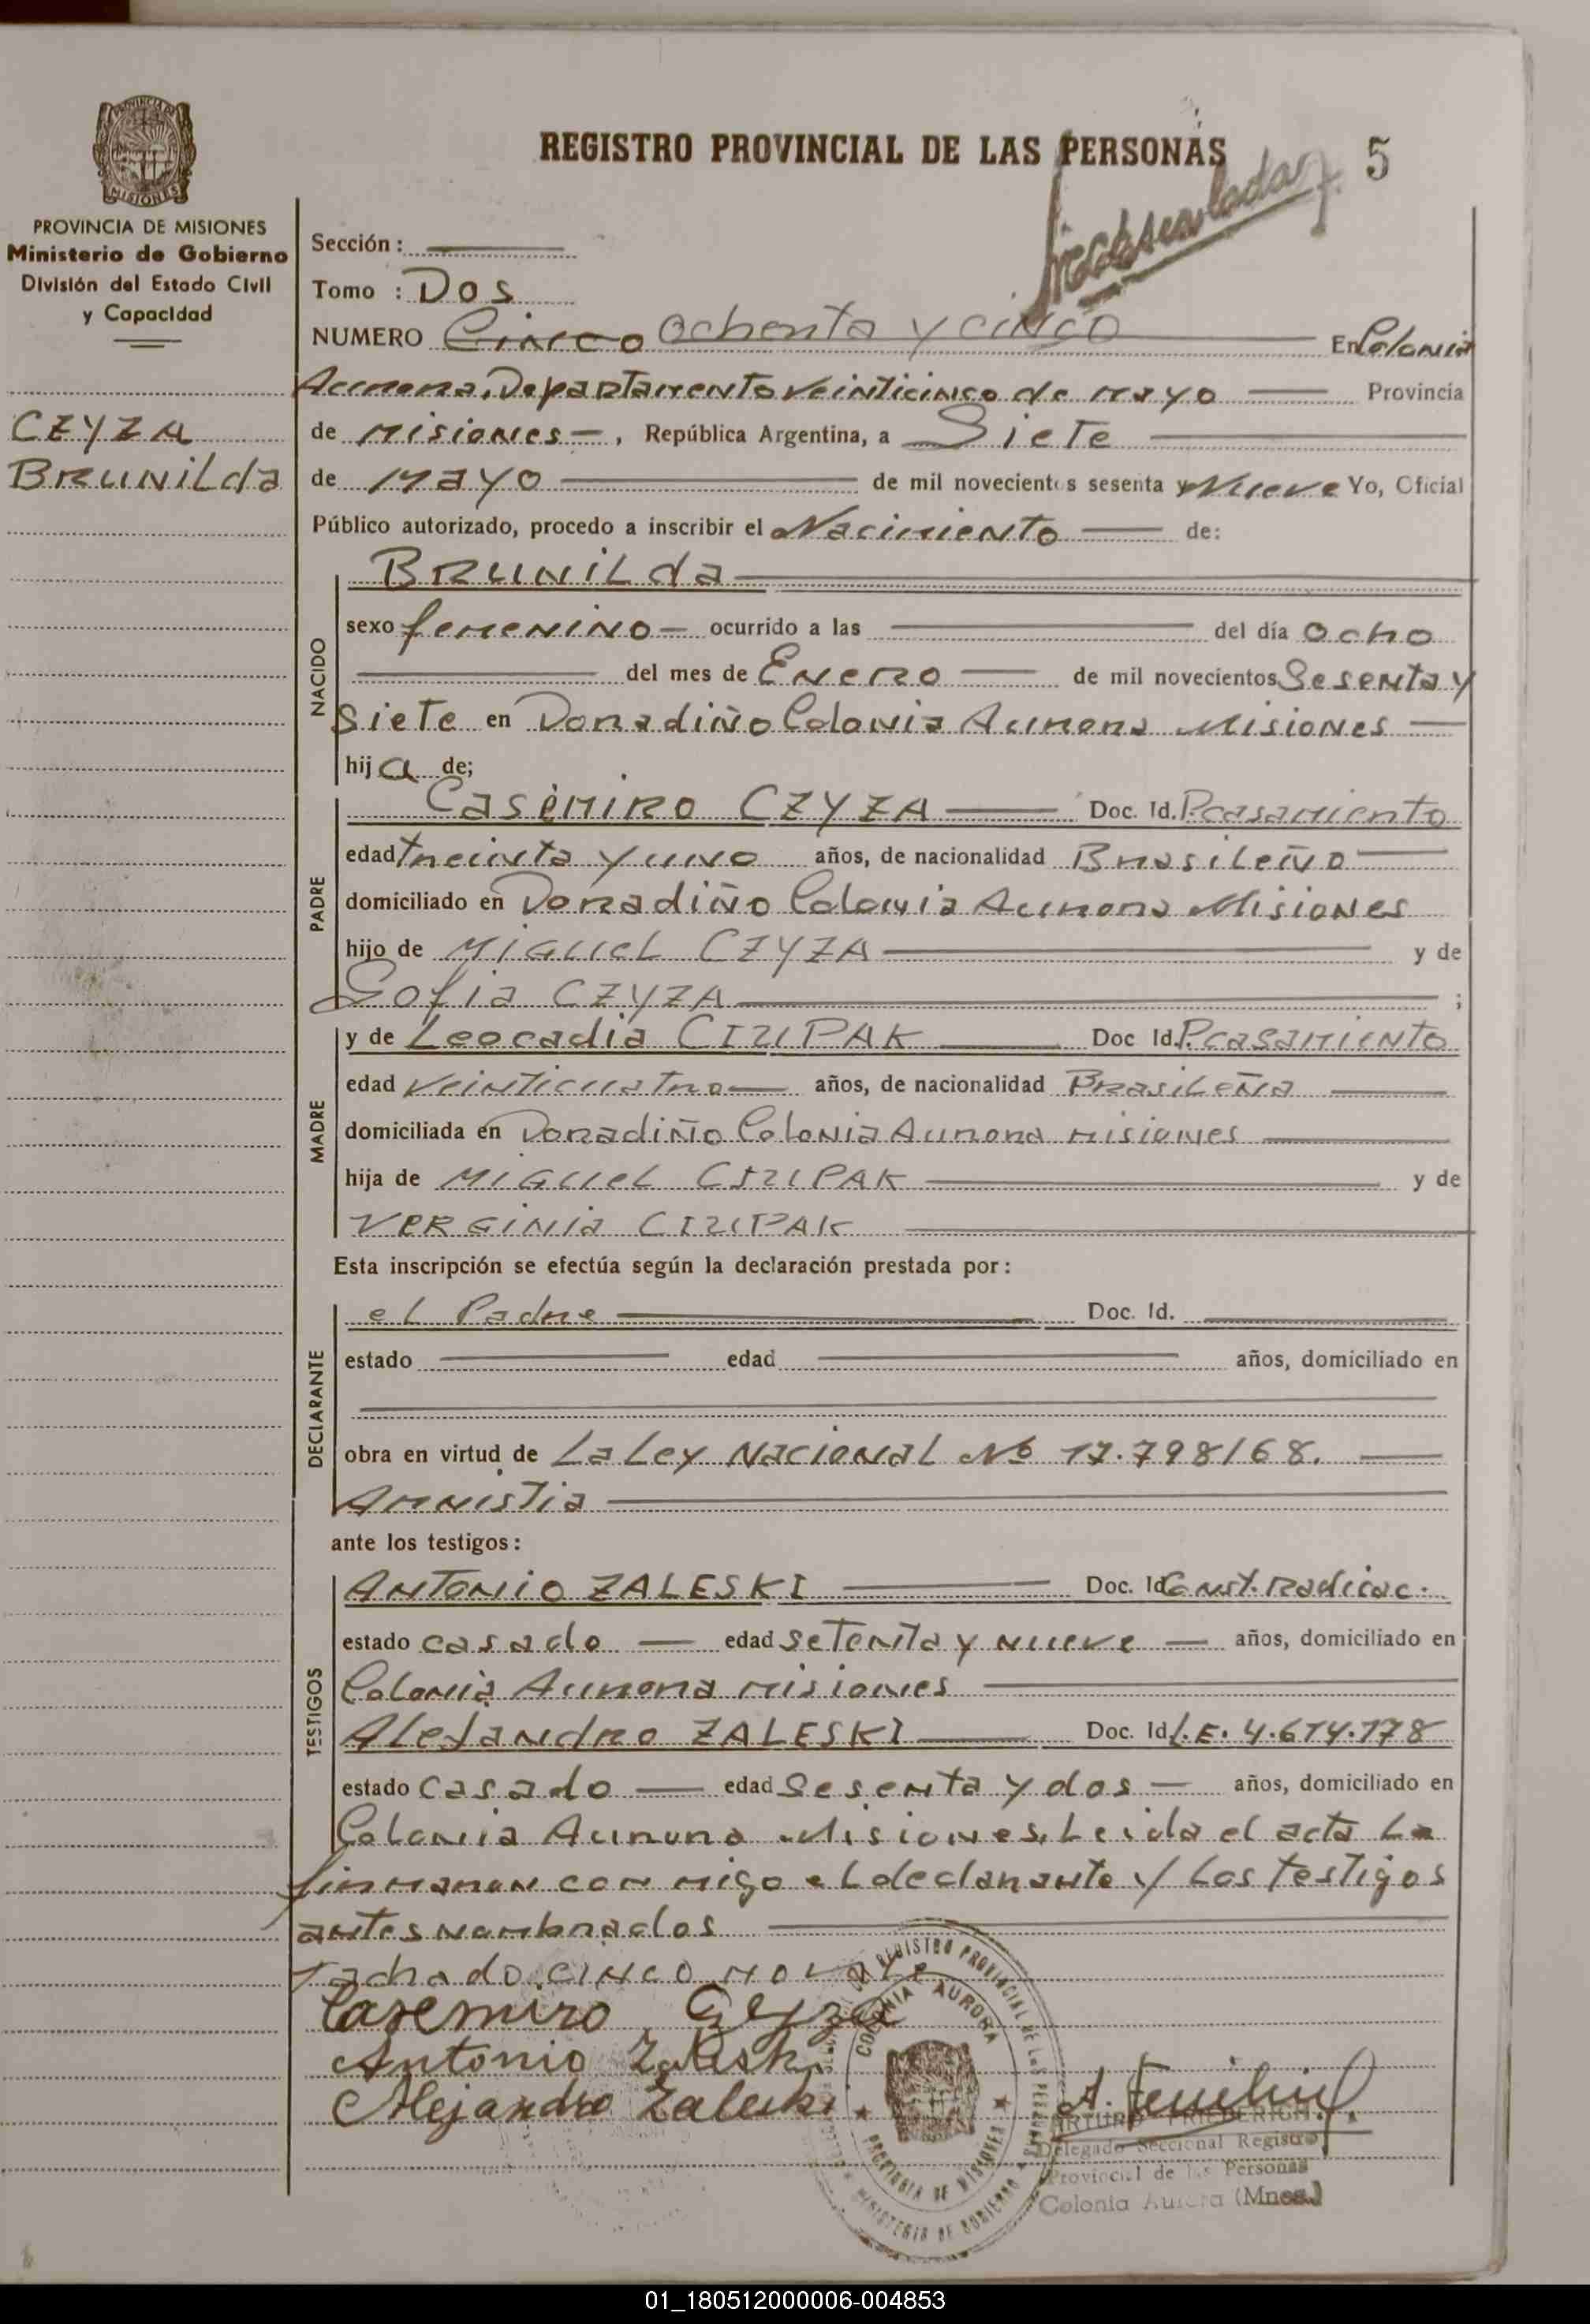 REGISTRO PROVINCIAL DE LAS PERSONAS
5
PROVINCIA DE MISIONES
MISIONES
PROVINCIA DE MISIONES
Ministerio de Gobierno
División del Estado Civil
y Capacidad
CZYZA
BRUNILda
Sección :
Tomo : Dos
NUMERO Cinco Ochenta y cinco En Colonia
Aurora, Departamento Veinticinco de mayo Provincia
de Misiones, República Argentina, a Siete
de Mayo de mil novecientos sesenta y Nueve Yo, Oficial
Público autorizado, procedo a inscribir el Nacimiento de:
NACIDO
BRUNILda
sexo femenino ocurrido a las del día Ocho
del mes de Enero de mil novecientos Sesenta y
Siete en Doradiño Colonia Aurora Misiones
hija de;
PADRE
Casemiro CZYZA Doc. Id. P.casamiento
edad treinta y uno años, de nacionalidad Brasileño
domiciliado en Doradiño Colonia Aurora Misiones
hijo de Miguel CZYZA y de
Sofia CZYZA ;
MADRE
y de Leocadia CIZUPAK Doc Id. P.casamiento
edad Veinticuatro años, de nacionalidad Brasileña
domiciliada en Doradiño Colonia Aurora misiones
hija de Miguel CIZUPAK y de
VERGINIA CIZUPAK
Esta inscripción se efectúa según la declaración prestada por :
DECLARANTE
el Padre Doc. Id.
estado edad años, domiciliado en
obra en virtud de La Ley Nacional Nº 17.798/68.
Amnistia
ante los testigos :
TESTIGOS
ANTONIO ZALESKI Doc. Id Const. Radicac.
estado casado edad setenta y nueve años, domiciliado en
Colonia Aurora misiones
Alejandro ZALESKI Doc. Id L.E. 4.614.178
estado Casado edad Sesenta y dos años, domiciliado en
Colonia Aurora Misiones. Leida el acta La
firmaran con migo el declarante y Los testigos
antes nombrados
Tachado cinco no vale
Casemiro Czyza
Antonio Zaleski
Alejandro Zaleski
REGISTRO PROVINCIAL DE LAS PERSONAS
COLONIA AURORA
PROVINCIA DE MISIONES
MINISTERIO DE GOBIERNO
ARTURO FRIEDERICH
Delegado Seccional Registro
Provincial de las Personas
Colonia Aurora (Mnes.)
01_180512000006-004853